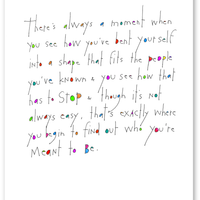 There's always a moment when
you see how you've bent yourself
into a shape that fits the people
you've known & you see how that
has to STOP & though its not
always easy, that's exactly where
you begin to find out who you're
MEANT to Be.